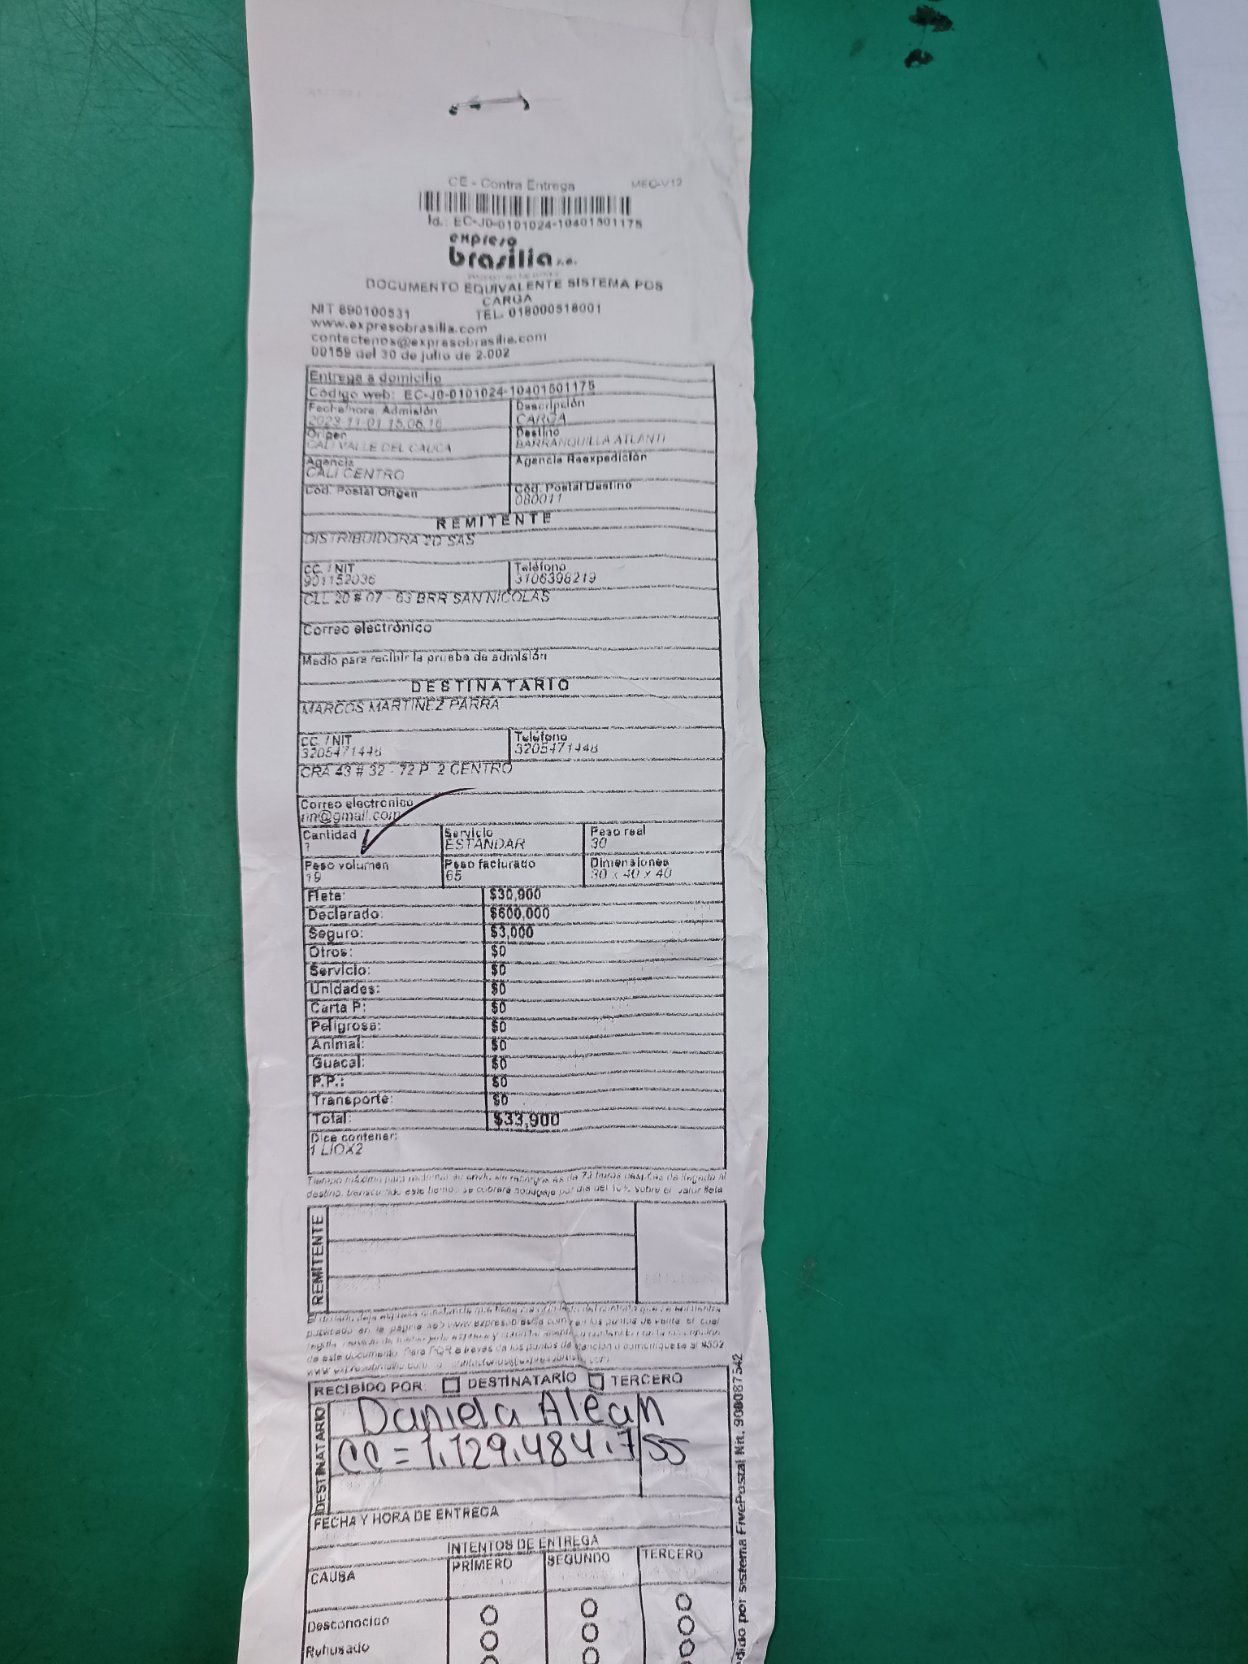 CE - Contra Entrega MEC-V12
Id.: EC-J0-0101024-10401501175
expreso
brasilia s.a.
DOCUMENTO EQUIVALENTE SISTEMA POS
CARGA
NIT 890100531 TEL. 018000518001
www.expresobrasilia.com
contactenos@expresobrasilia.com
00159 del 30 de julio de 2.002
Entrega a domicilio
Código web: EC-J0-0101024-10401501175
Fecha/hora Admisión Descripción
2023-11-01 15:06:16 CARGA
Origen Destino
CALI VALLE DEL CAUCA BARRANQUILLA ATLANTI
Agencia Agencia Reexpedición
CALI CENTRO
Cód. Postal Origen Cód. Postal Destino
080011
REMITENTE
DISTRIBUIDORA 2D SAS
CC. / NIT Teléfono
901152036 3106398219
CLL 20 # 07 - 63 BRR SAN NICOLAS
Correo electrónico
Medio para recibir la prueba de admisión
DESTINATARIO
MARCOS MARTINEZ PARRA
CC. / NIT Teléfono
3205471446 3205471446
CRA 43 # 32 - 72 P 2 CENTRO
Correo electrónico
nn@gmail.com
Cantidad Servicio Peso real
ESTANDAR 30
Peso volumen Peso facturado Dimensiones
19 65 30 x 40 x 40
Flete: $30,900
Declarado: $600,000
Seguro: $3,000
Otros: $0
Servicio: $0
Unidades: $0
Carta P: $0
Peligrosa: $0
Animal: $0
Guacal: $0
P.P.: $0
Transporte: $0
Total: $33,900
Dice contener:
1 LIOX2
Tiempo máximo para reclamar su envío sin recargos es de 72 horas después de llegado al
destino, transcurrido este tiempo se cobrará bodegaje por día del 10%, sobre el valor flete
REMITENTE
RECIBIDO POR: DESTINATARIO TERCERO
DESTINATARIO
Daniela Aleàn
CC = 1.129.484.755
FECHA Y HORA DE ENTREGA
INTENTOS DE ENTREGA
CAUSA PRIMERO SEGUNDO TERCERO
Desconocido
Rehusado
sistema FivePostal Nit. 900087542